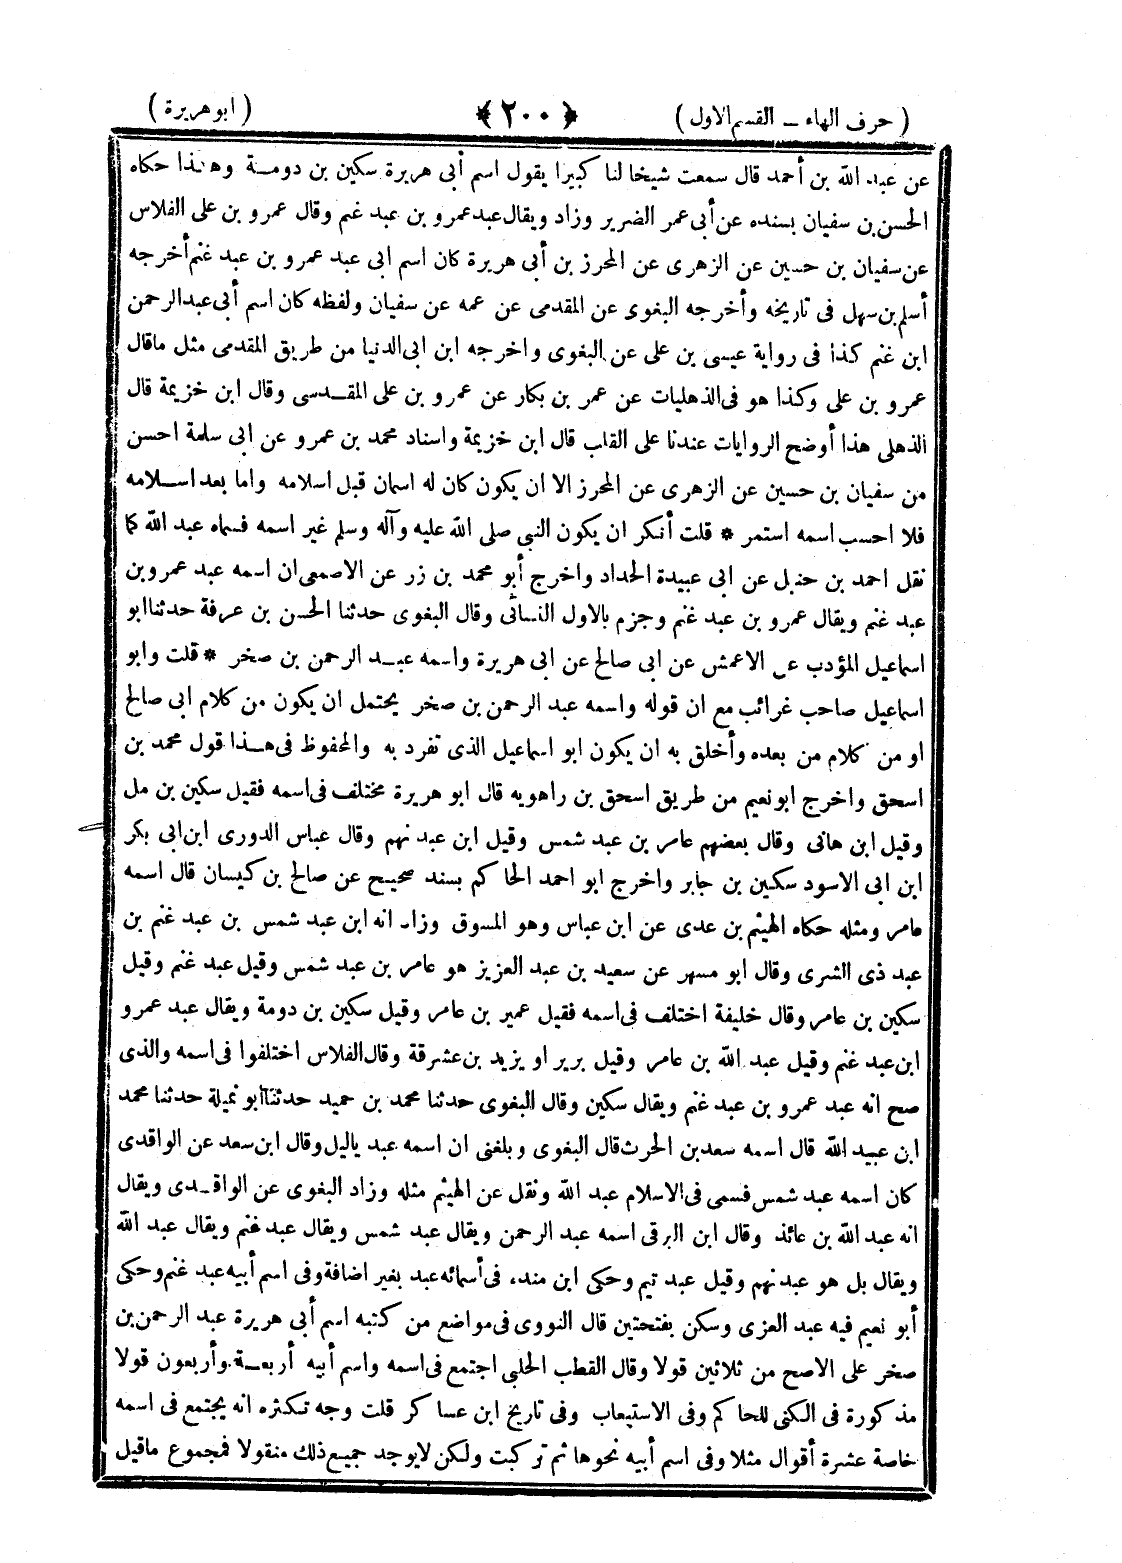 ( حرف الهاء ــ القسم الاول )
﴿ ٢٠٠ ﴾
( ابو هريرة )
عن عبد الله بن أحمد قال سمعت شيخا لنا كبيرا يقول اسم أبى هريرة سكين بن دومـة وهـذا حكاه
الحسن بن سفيان بسنده عن أبى عمر الضرير وزاد ويقال عبد عمرو بن عبد غنم وقال عمرو بن على الفلاس
عن سفيان بن حسين عن الزهرى عن المحرز بن أبى هريرة كان اسم ابى عبد عمرو بن عبد غنم أخرجه
أسلم بن سهل فى تاريخه وأخرجه البغوى عن المقدمى عن عمه عن سفيان ولفظه كان اسم أبى عبد الرحمن
ابن غنم كذا فى رواية عيسى بن على عن البغوى واخرجه ابن ابى الدنيا من طريق المقدمى مثل ماقال
عمرو بن على وكذا هو فى الذهليات عن عمر بن بكار عن عمرو بن على المقـدسى وقال ابن خزيمة قال
الذهلى هذا أوضح الروايات عندنا على القلب قال ابن خزيمة واسناد محمد بن عمرو عن ابى سلمة احسن
من سفيان بن حسين عن الزهرى عن المحرز الا ان يكون كان له اسمان قبل اسلامه واما بعد اسـلامه
فلا احسب اسمه استمر * قلت أنكر ان يكون النبى صلى الله عليه وآله وسلم غير اسمه فسماه عبد الله كما
نقل احمد بن حنبل عن ابى عبيدة الحداد واخرج أبو محمد بن زر عن الاصمعى ان اسمه عبد عمرو بن
عبد غنم ويقال عمرو بن عبد غنم وجزم بالاول النسائى وقال البغوى حدثنا الحسن بن عرفة حدثنا ابو
اسماعيل المؤدب عن الاعمش عن ابى صالح عن ابى هريرة واسمه عبـد الرحمن بن صخر * قلت وابو
اسماعيل صاحب غرائب مع ان قوله واسمه عبد الرحمن بن صخر يحتمل ان يكون من كلام ابى صالح
او من كلام من بعده وأخلق به ان يكون ابو اسماعيل الذى تفرد به والمحفوظ فى هـذا قول محمد بن
اسحق واخرج ابو نعيم من طريق اسحق بن راهويه قال ابو هريرة مختلف فى اسمه فقيل سكين بن مل
وقيل ابن هانى وقال بعضهم عامر بن عبد شمس وقيل ابن عبد نهم وقال عباس الدورى ابن ابى بكر
ابن ابى الاسود سكين بن جابر واخرج ابو احمد الحاكم بسند صحيح عن صالح بن كيسان قال اسمه
عامر ومثله حكاه الهيثم بن عدى عن ابن عباس وهو المسوق وزاد انه ابن عبد شمس بن عبد غنم بن
عبد ذى الشرى وقال ابو مسهر عن سعيد بن عبد العزيز هو عامر بن عبد شمس وقيل عبد غنم وقيل
سكين بن عامر وقال خليفة اختلف فى اسمه فقيل عمير بن عامر وقيل سكين بن دومة ويقال عبد عمرو
ابن عبد غنم وقيل عبد الله بن عامر وقيل برير او يزيد بن عشرقة وقال الفلاس اختلفوا فى اسمه والذى
صح انه عبد عمرو بن عبد غنم ويقال سكين وقال البغوى حدثنا محمد بن حميد حدثنا أبو نميلة حدثنا محمد
ابن عبيد الله قال اسمه سعد بن الحرث قال البغوى وبلغنى ان اسمه عبد ياليل وقال ابن سعد عن الواقدى
كان اسمه عبد شمس فسمى فى الاسلام عبد الله ونقل عن الهيثم مثله وزاد البغوى عن الواقـدى ويقال
انه عبد الله بن عائذ وقال ابن البرقى اسمه عبد الرحمن ويقال عبد شمس ويقال عبد غنم ويقال عبد الله
ويقال بل هو عبد نهم وقيل عبد تيم وحكى ابن منده فى أسمائه عبد بغير اضافة وفى اسم أبيه عبد غنم وحكى
أبو نعيم فيه عبد العزى وسكن بفتحتين قال النووى فى مواضع من كتبه اسم أبى هريرة عبد الرحمن بن
صخر على الاصح من ثلاثين قولا وقال القطب الحلبى اجتمع فى اسمه واسم أبيه أربعـة وأربعون قولا
مذكورة فى الكنى للحاكم وفى الاستيعاب وفى تاريخ ابن عساكر قلت وجه تكثره انه يجتمع فى اسمه
خاصة عشرة أقوال مثلا وفى اسم أبيه نحوها ثم تركبت ولكن لايوجد جميع ذلك منقولا فمجموع ماقيل